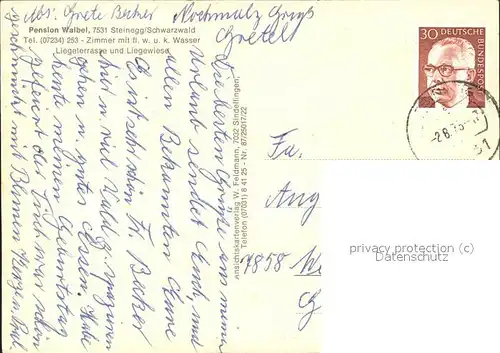 Abs: Grete Becker
Pension Waibel, 7531 Steinegg/Schwarzwald
Tel. (07234) 253 - Zimmer mit fl. w. u. k. Wasser
Liegeterrasse und Liegewiese
Nochmals Gruß
Gretel
30 DEUTSCHE
BUNDESPOST
-2.8.75
Ansichtskartenverlag W. Feldmann, 7032 Sindelfingen,
Telefon (07031) 8 41 25 - Nr. 87/250/17/22
Die besten Grüße aus meinem
Urlaub sendet Euch, und
allen Bekannten Eure
Fr. Becker
Es ist schön
hier u. viel Wald z. spazieren
gehen u. gutes Essen. Habe
heute meinen Geburtstag
gefeiert der Tisch war schön
geschmückt mit Blumen Kerzen
Fa.
Aug
7858 W
privacy protection (c)
Datenschutz